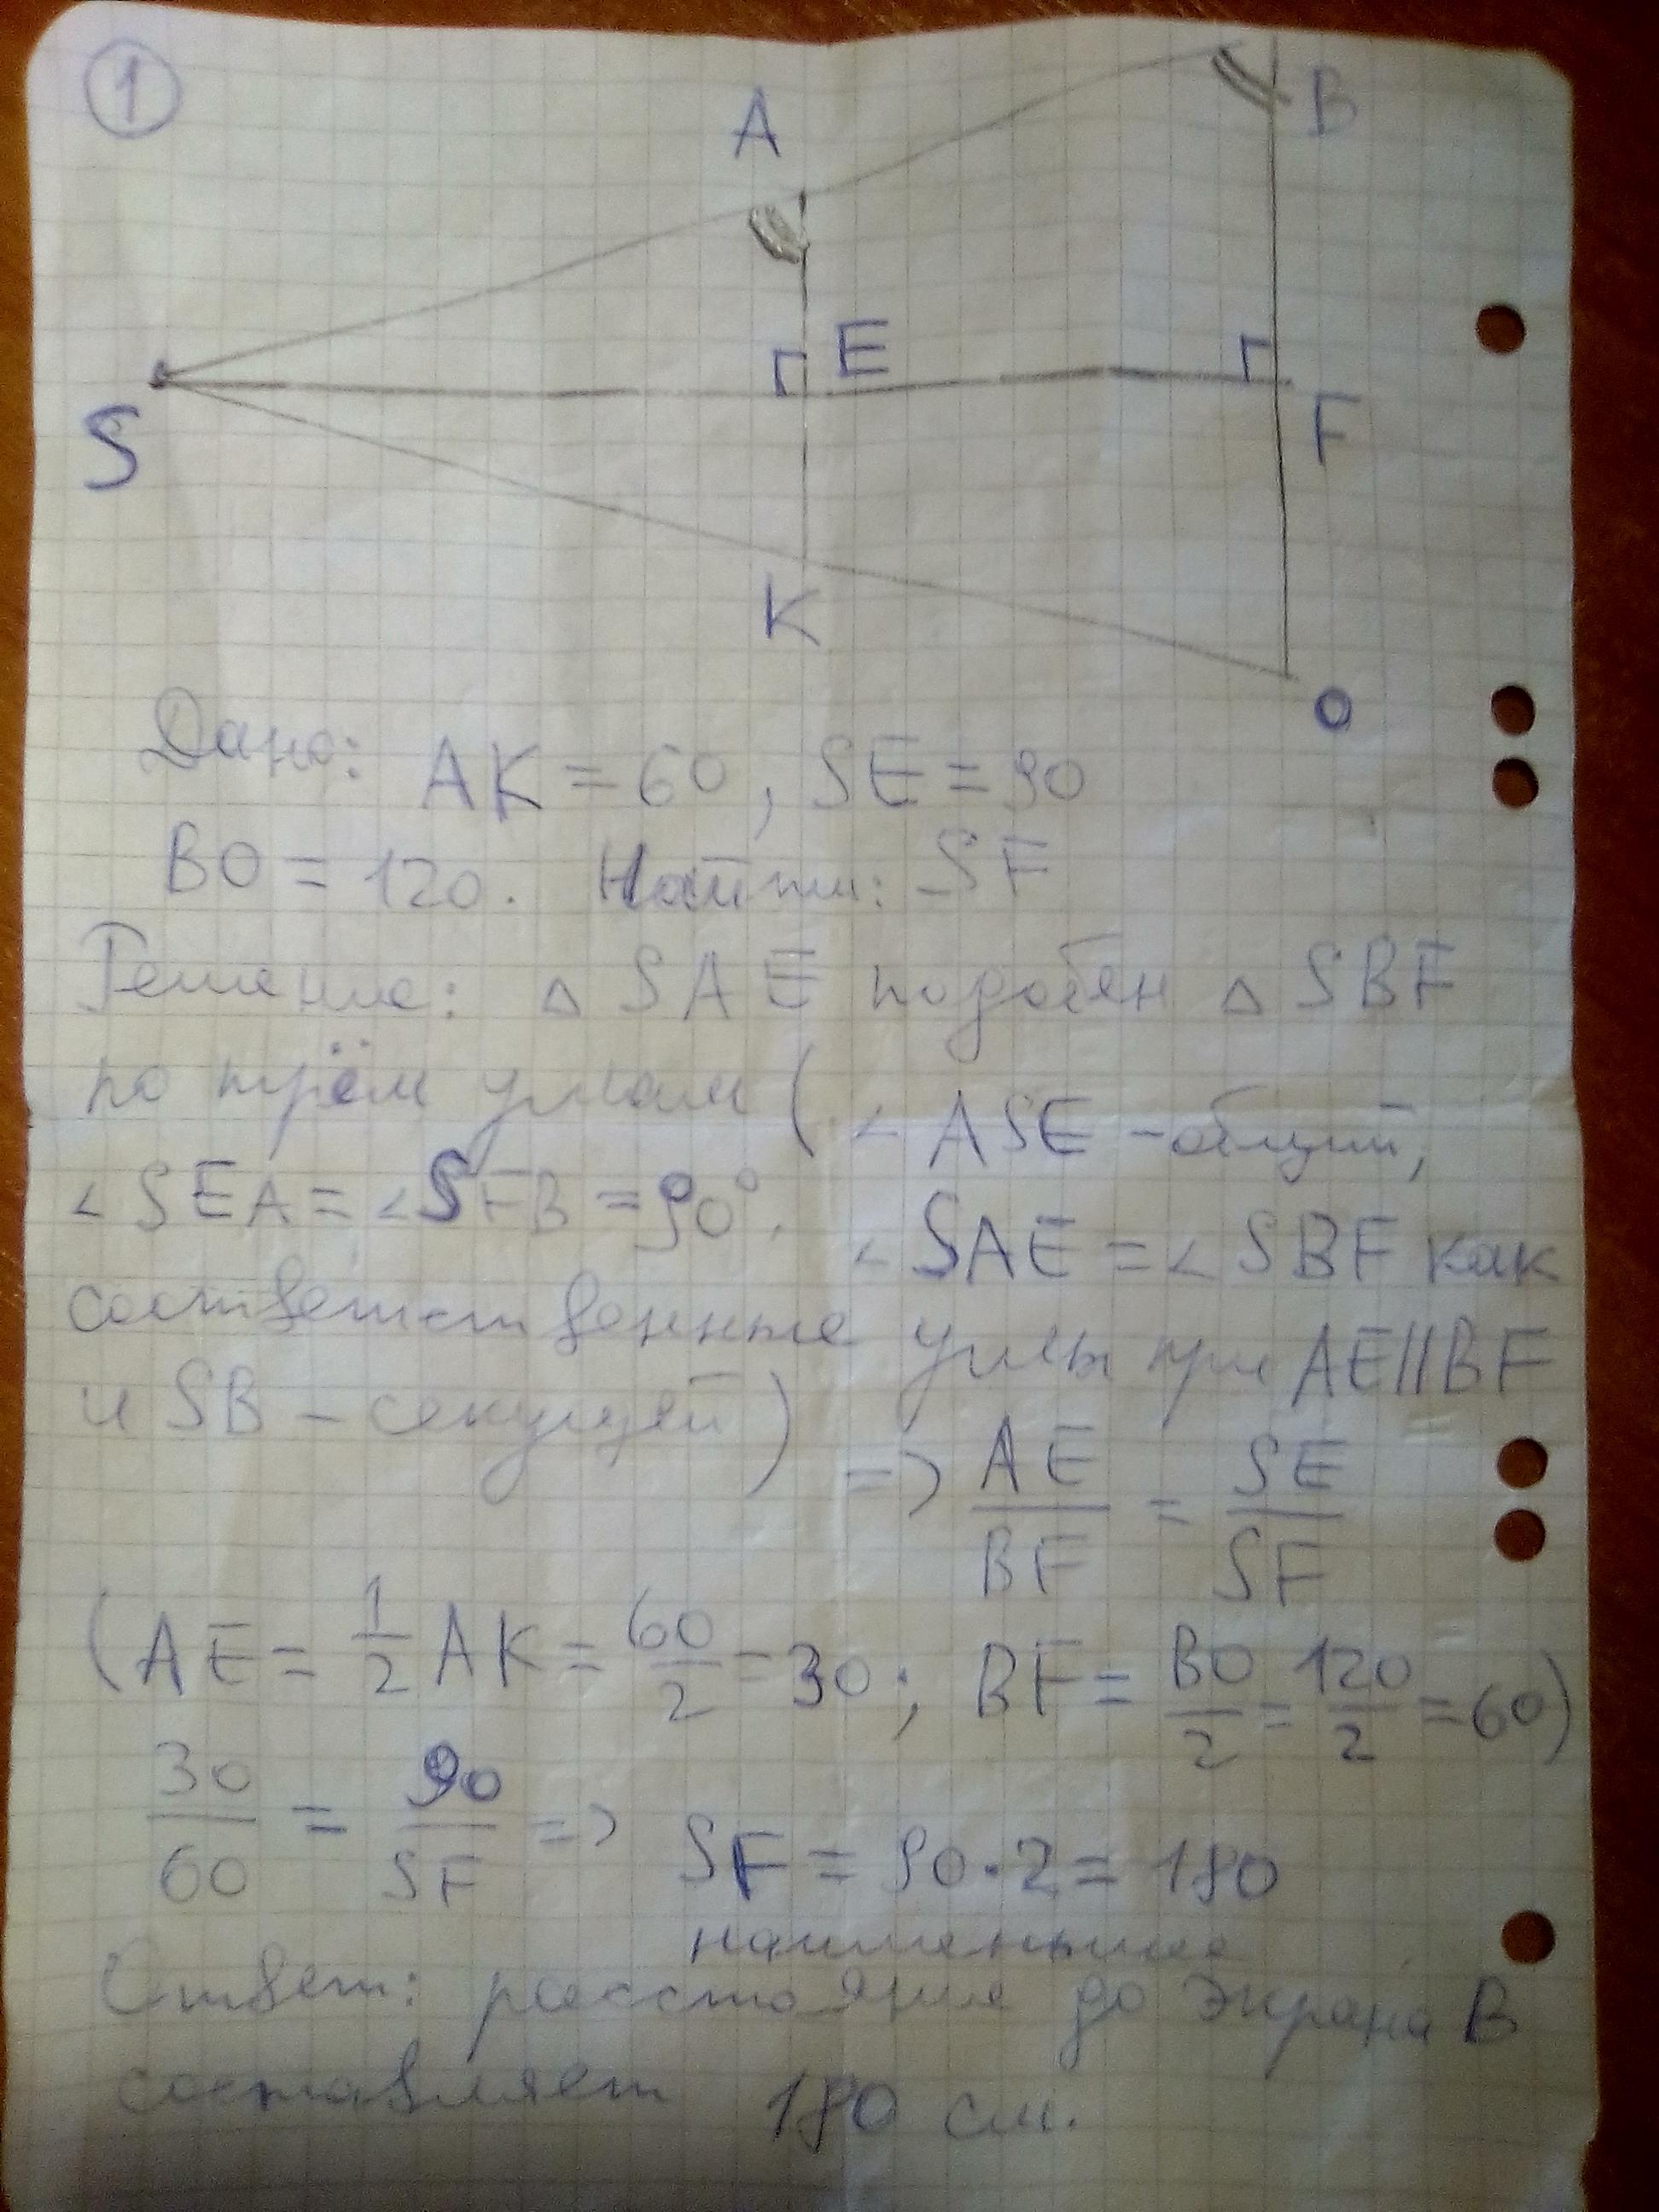 1
A
B
E
S
F
K
O
Дано: AK = 60, SE = 90
BO = 120. Найти: SF
Решение: △ SAE подобен △ SBF
по трём углам (∠ ASE - общий,
∠ SEA = ∠ SFB = 90°. ∠ SAE = ∠ SBF как
соответственные углы при AE||BF
и SB - секущей) => AE/BF = SE/SF
(AE = 1/2 AK = 60/2 = 30; BF = BO/2 = 120/2 = 60)
30/60 = 90/SF => SF = 90·2 = 180
наименьшее
Ответ: расстояние до экрана B
составляет 180 см.